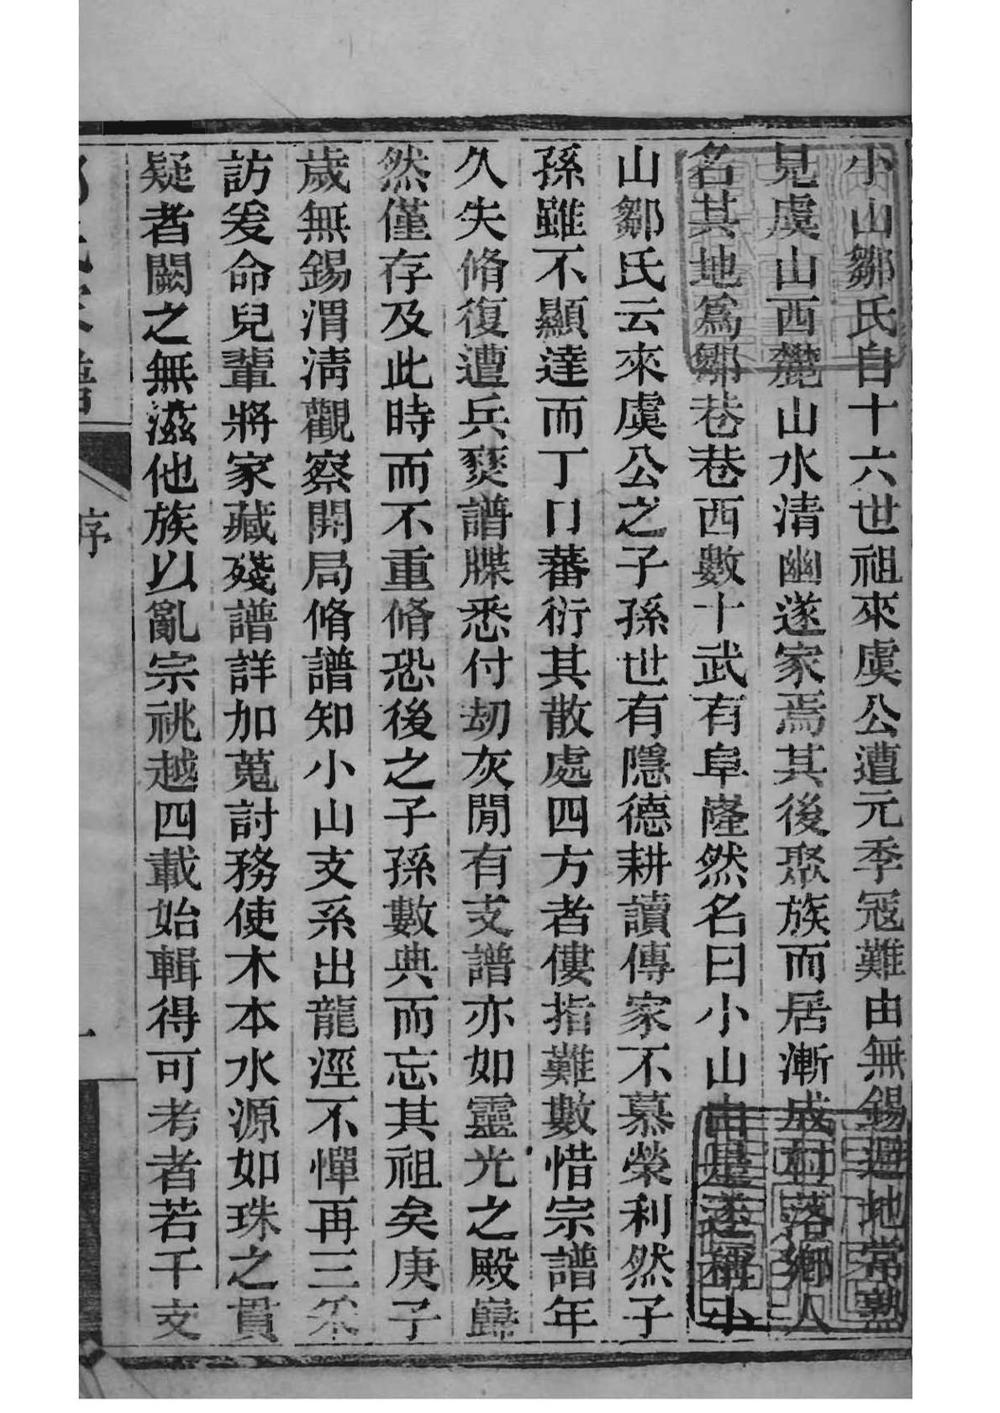 小山鄒氏自十六世祖來虞公遭元季冦難由無錫避地常熟
見虞山西麓山水清幽遂家焉其後聚族而居漸成村落鄉人
名其地為鄒巷巷西數十武有阜隆然名曰小山由是遂稱小
山鄒氏云來虞公之子孫世有隱德耕讀傳家不慕榮利然子
孫雖不顯達而丁口蕃衍其散處四方者僂指難數惜宗譜年
久失脩復遭兵燹譜牒悉付劫灰閒有支譜亦如靈光之殿巋
然僅存及此時而不重脩恐後之子孫數典而忘其祖矣庚子
歲無錫渭清觀察開局脩譜知小山支系出龍涇不憚再三采
訪爰命兒輩將家藏殘譜詳加蒐討務使木本水源如珠之貫
疑者闕之無滋他族以亂宗祧越四載始輯得可考者若干支
序
一